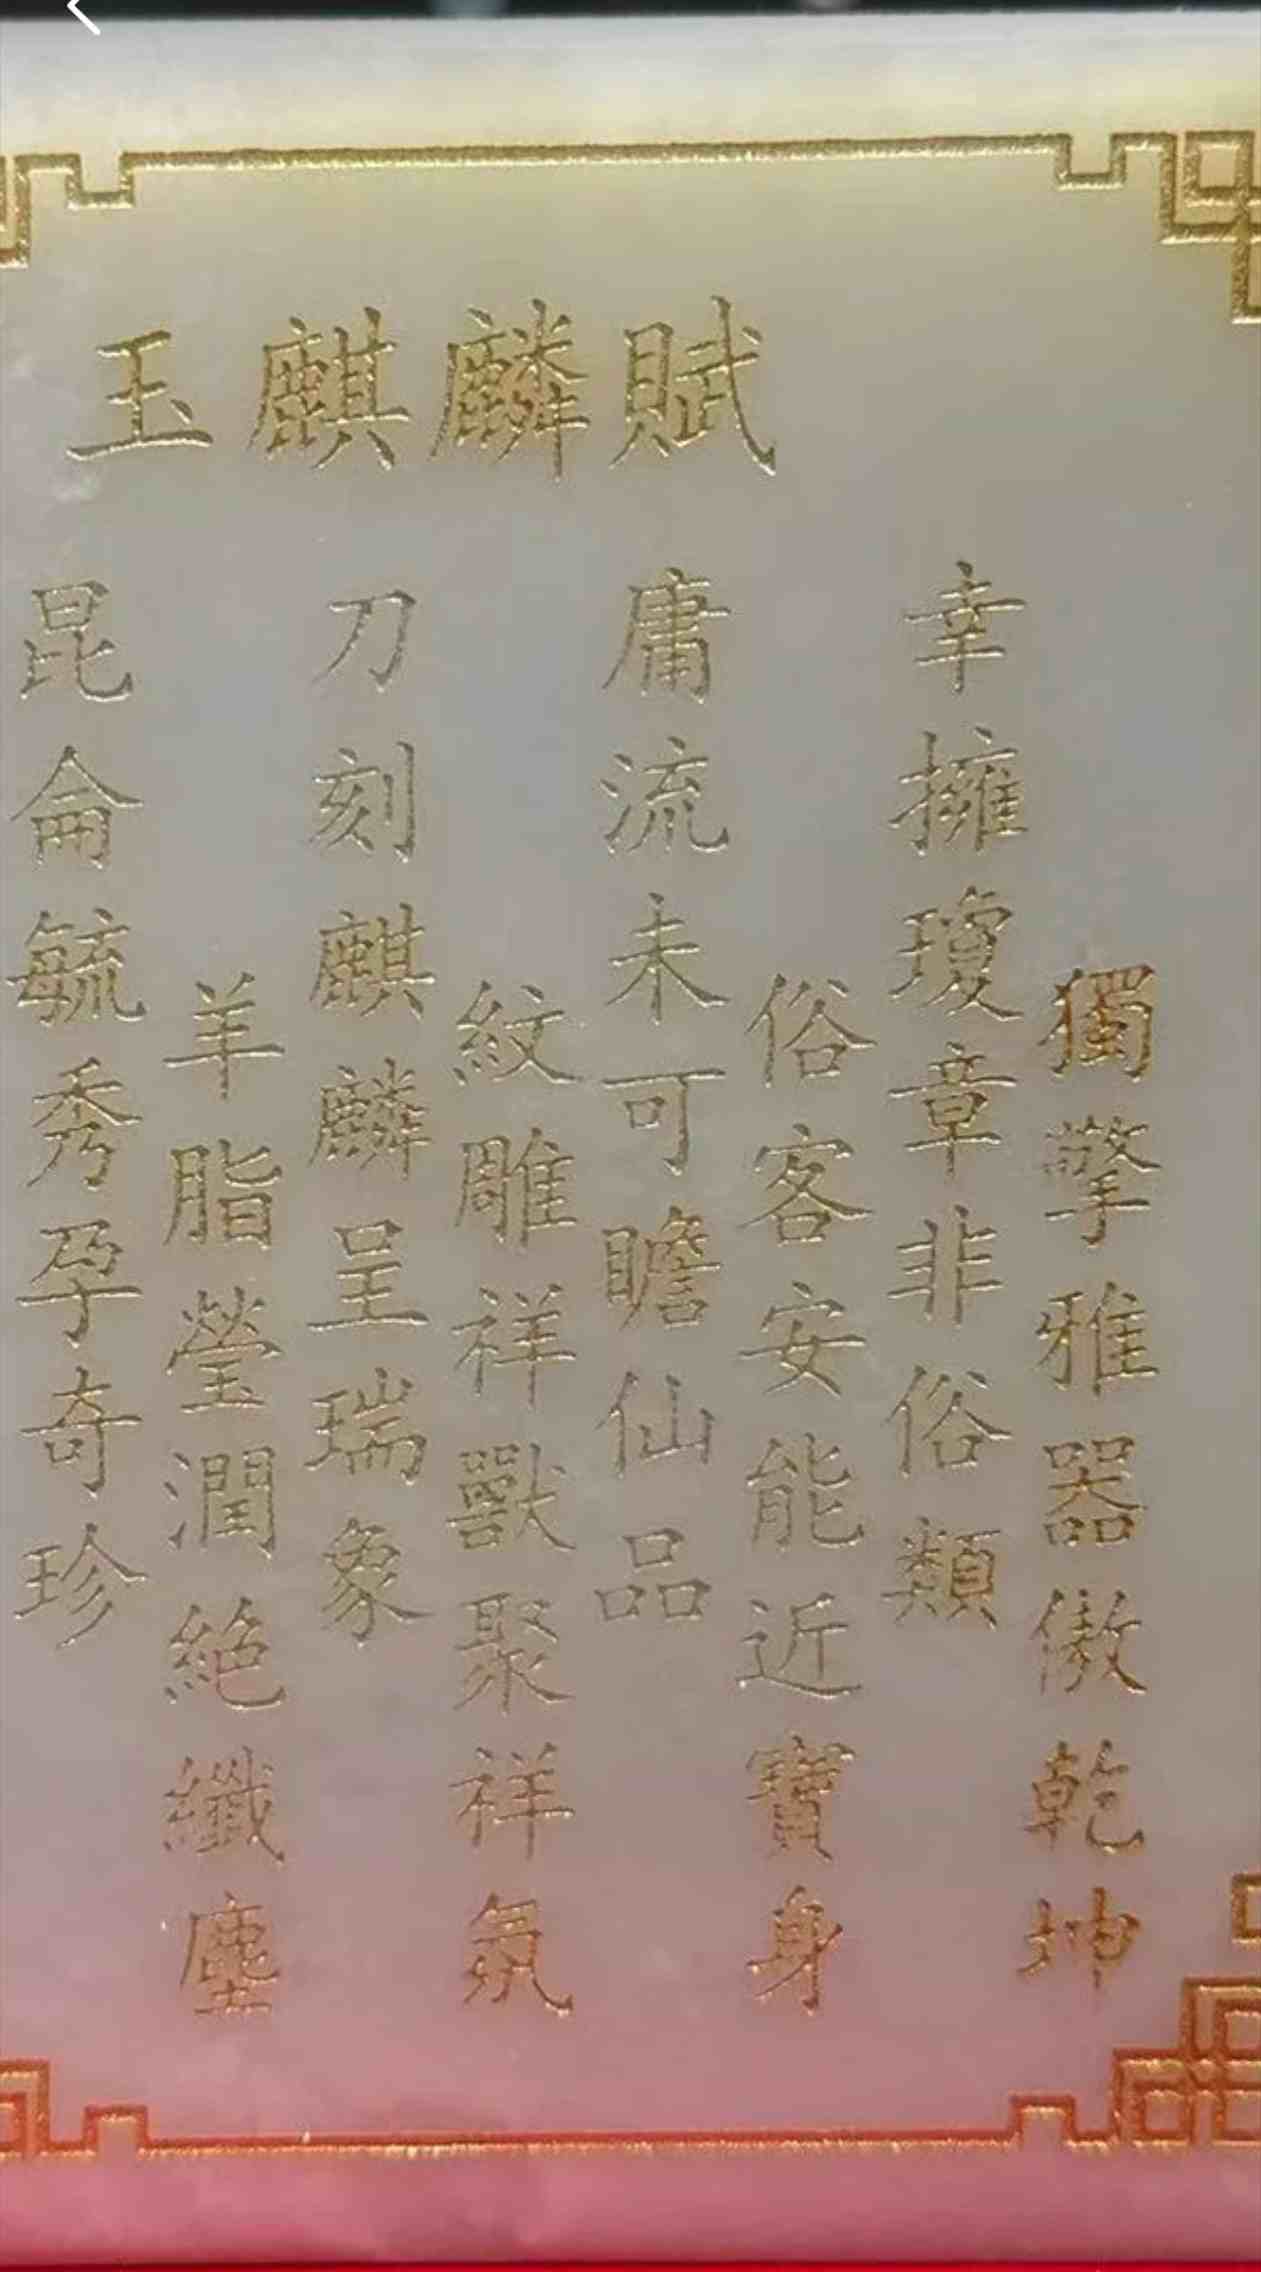 玉麒麟賦
昆侖毓秀孕奇珍
羊脂瑩潤絕纖塵
刀刻麒麟呈瑞象
紋雕祥獸聚祥氛
庸流未可瞻仙品
俗客安能近寶身
幸擁瓊章非俗類
獨擎雅器傲乾坤